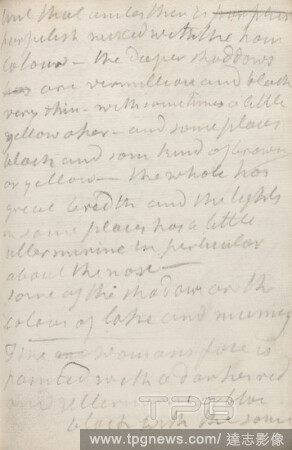 and that under ther is
purpelish mixed with the hair
colour – the deeper shaddows
are vermillion and black
very thin – with sometimes a little
yellow oker – and some places
black and som kind of brown
or yellow – the whole has
great bredth and the lights
in some places has a little
ultermirine in particular
about the nose –
some of the shadows are the
colour of lake and mummy
The womans face is
painted with a dark red
and ultermirine
black with the same
TPG
www.tpgnews.com / 達志影像